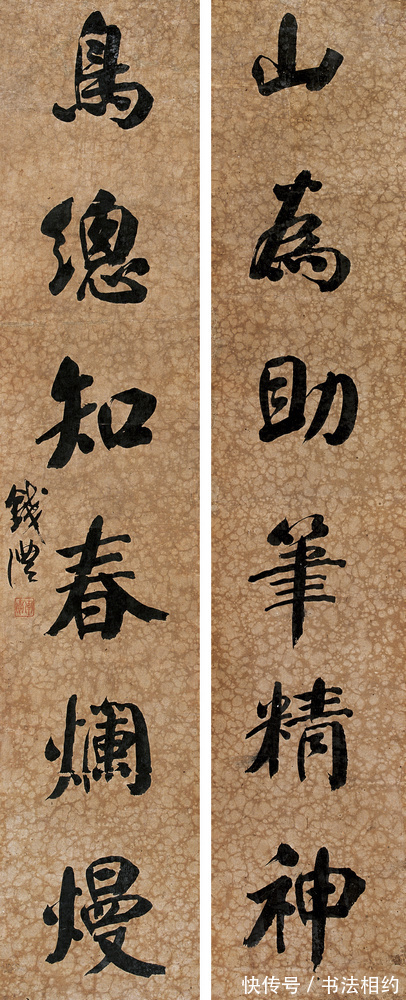 山為助筆精神
鳥總知春爛熳
錢灃
快传号/书法相约